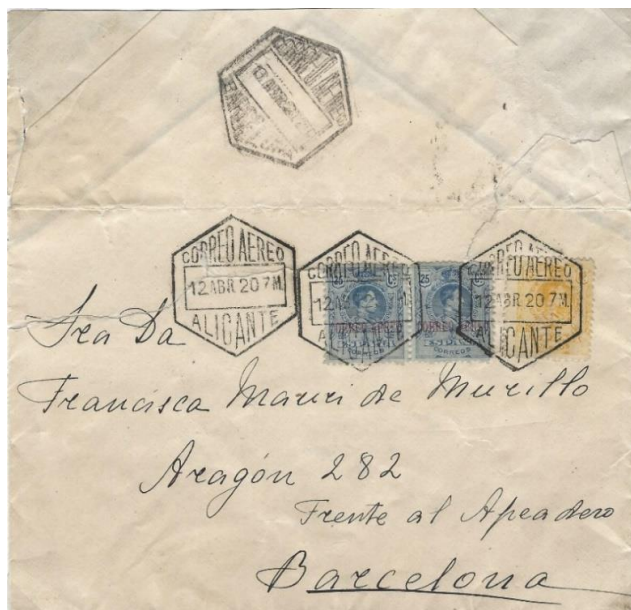 CORREO AEREO
BARCELONA
CORREO AEREO
12 ABR 20 7M.
ALICANTE
CORREO AEREO
12 ABR 20 7M.
ALICANTE
CORREO AEREO
12 ABR 20 7M.
ALICANTE
25
CORREO AEREO
CORREOS
25
CORREO AEREO
CORREOS
Sra Da
Francisca Mauri de Murillo
Aragón 282
Frente al Apeadero
Barcelona